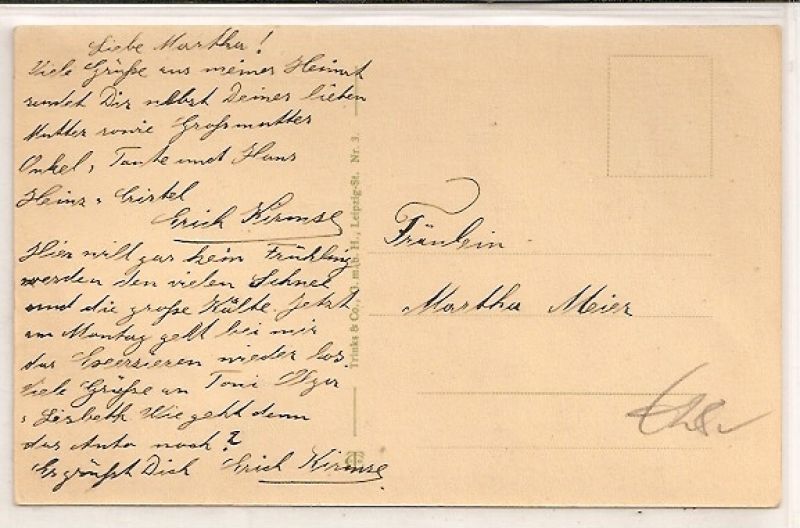 Liebe Martha!
Viele Grüße aus meiner Heimat
sendet Dir nebst Deiner lieben
Mutter sowie Großmutter
Onkel, Tante und Hans
Heinz,
Erich Kirmse
Hier will gar kein Frühling
werden den vielen Schnee
und die große Kälte. Jetzt
am Montag geht bei mir
das Exerzieren wieder los.
Viele Grüße an Toni
Lisbeth Wie geht denn
das Auto noch?
Es grüßt Dich Erich Kirmse
Trinks & Co., G. m. b. H., Leipzig-St. Nr. 3.
Fräulein
Martha Meier